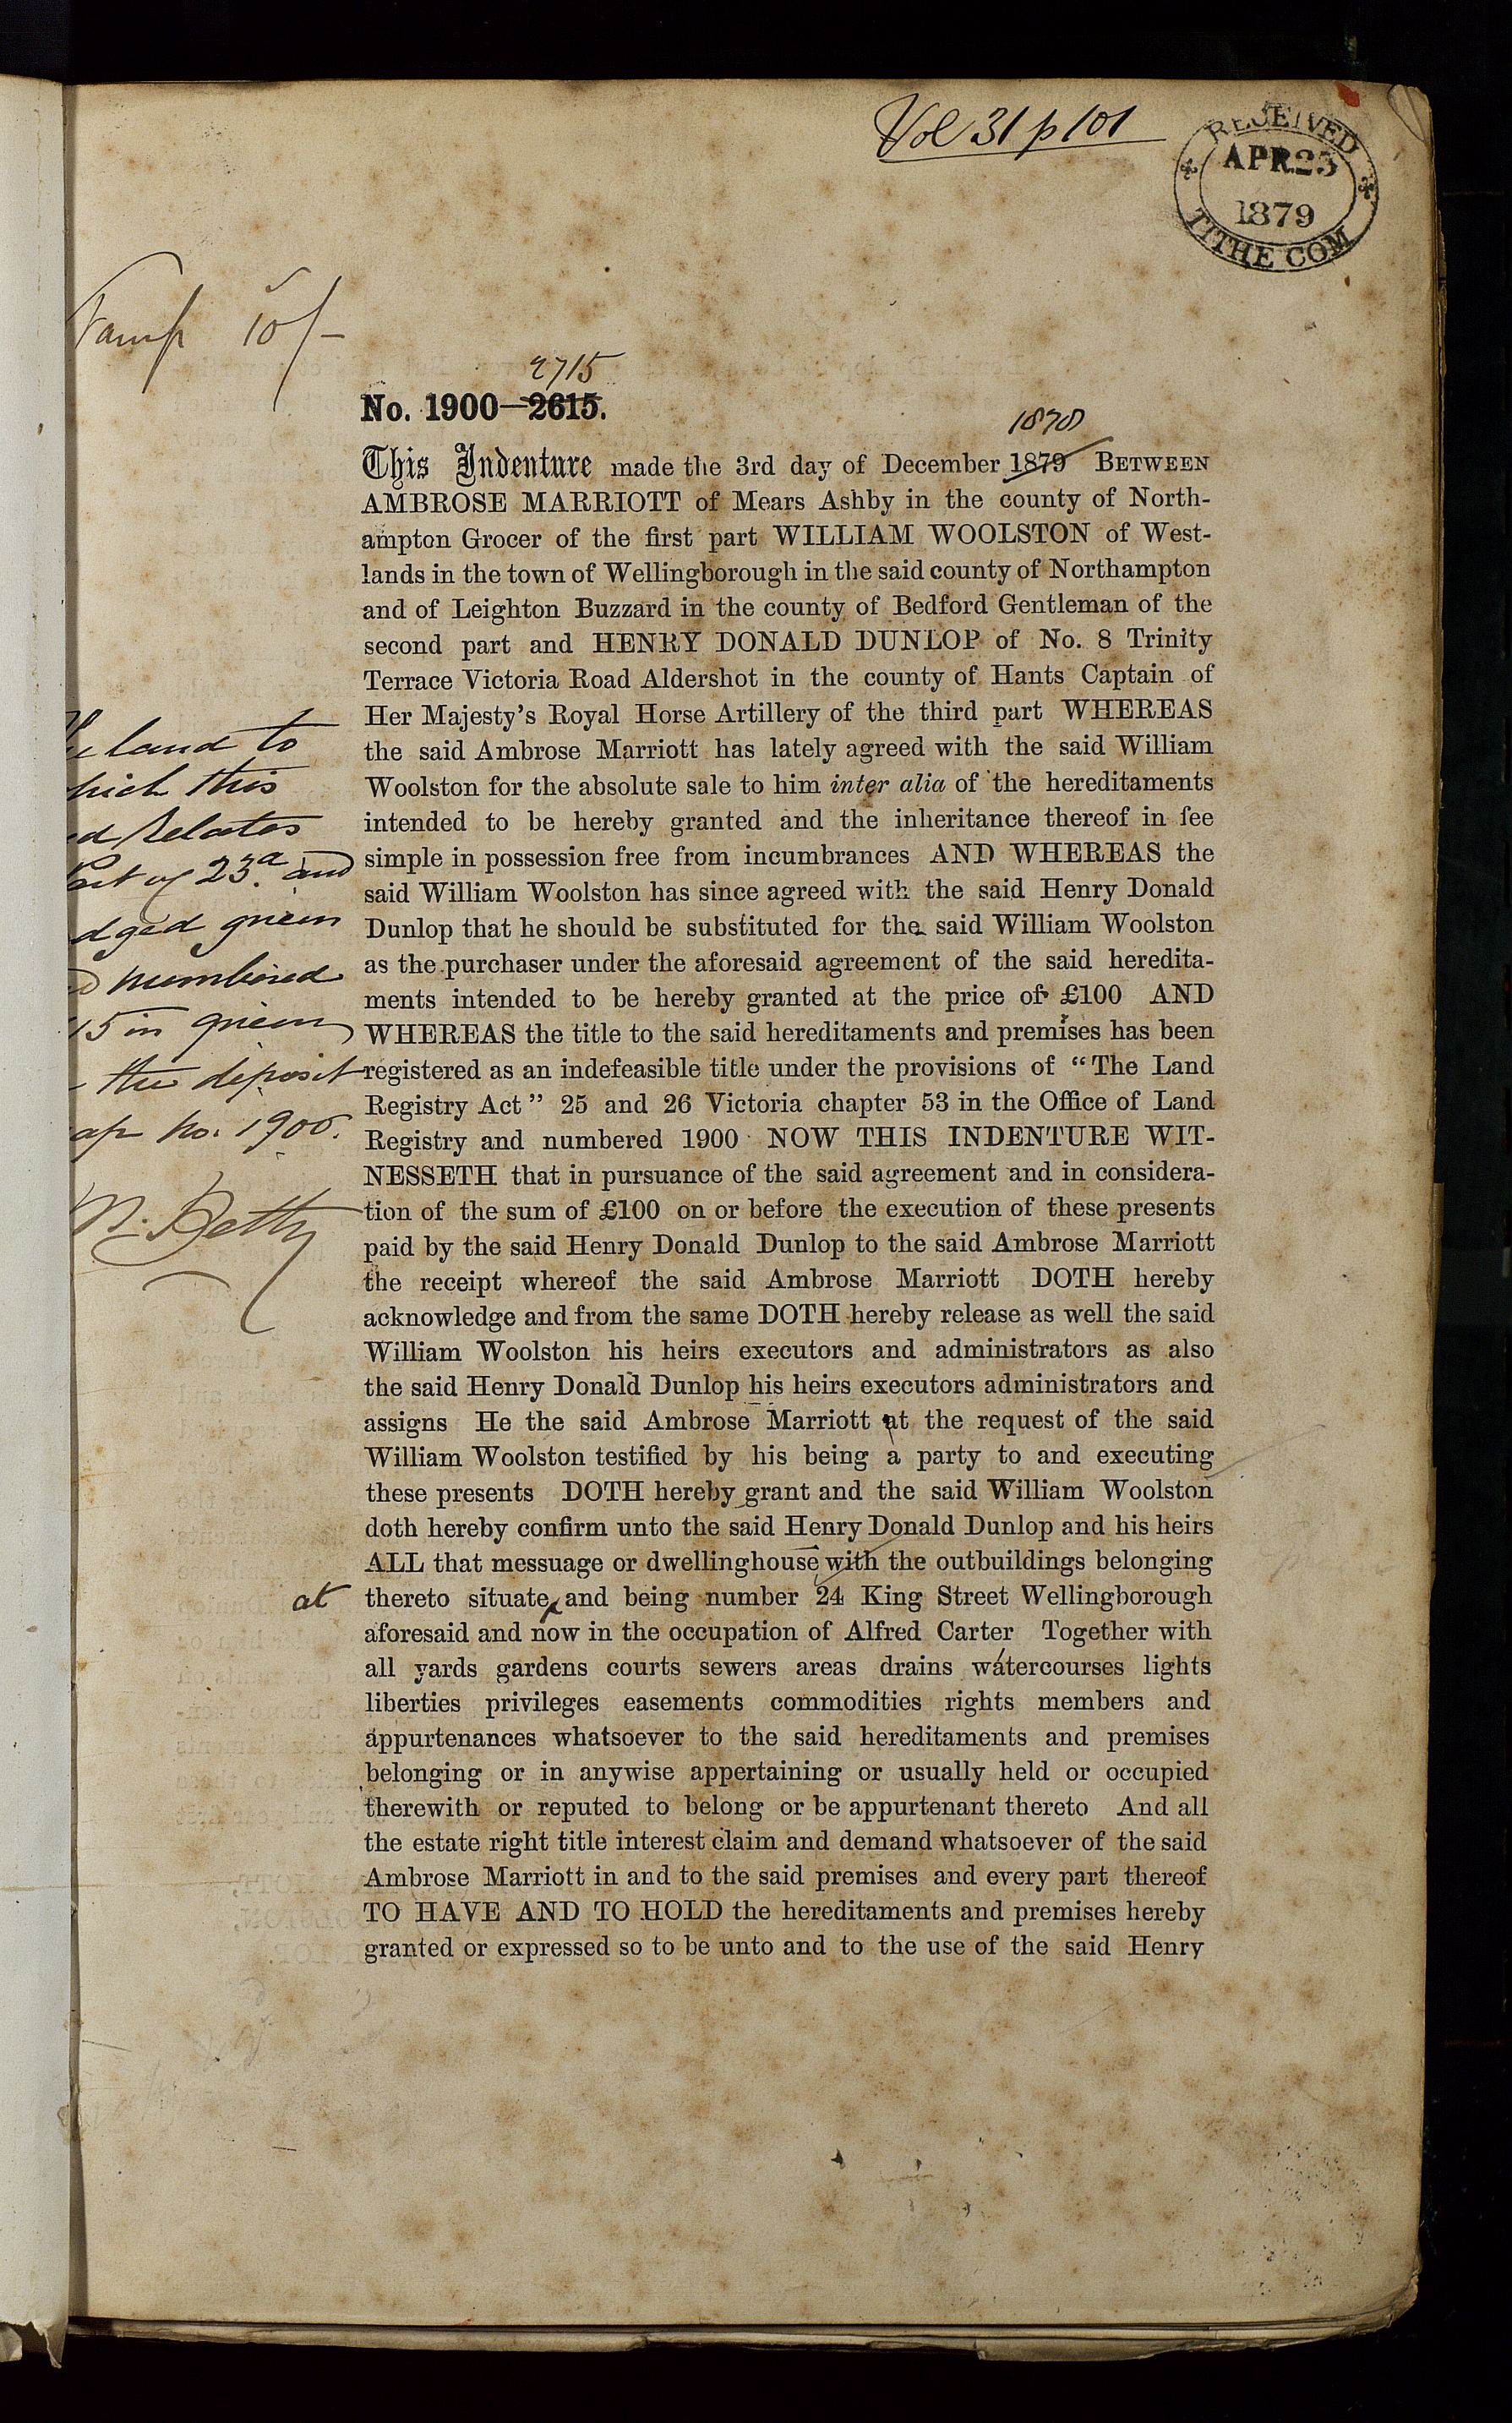 Vol 31 p 101
RECEIVED
APR 25
1879
TITHE COM
10/-
2715
No. 1900—2615.
1878
This Indenture made the 3rd day of December 1879 BETWEEN
AMBROSE MARRIOTT of Mears Ashby in the county of North-
ampton Grocer of the first part WILLIAM WOOLSTON of West-
lands in the town of Wellingborough in the said county of Northampton
and of Leighton Buzzard in the county of Bedford Gentleman of the
second part and HENRY DONALD DUNLOP of No. 8 Trinity
Terrace Victoria Road Aldershot in the county of Hants Captain of
Her Majesty's Royal Horse Artillery of the third part WHEREAS
the said Ambrose Marriott has lately agreed with the said William
Woolston for the absolute sale to him inter alia of the hereditaments
intended to be hereby granted and the inheritance thereof in fee
simple in possession free from incumbrances AND WHEREAS the
said William Woolston has since agreed with the said Henry Donald
Dunlop that he should be substituted for the said William Woolston
as the purchaser under the aforesaid agreement of the said heredita-
ments intended to be hereby granted at the price of £100 AND
WHEREAS the title to the said hereditaments and premises has been
registered as an indefeasible title under the provisions of "The Land
Registry Act" 25 and 26 Victoria chapter 53 in the Office of Land
Registry and numbered 1900 NOW THIS INDENTURE WIT-
NESSETH that in pursuance of the said agreement and in considera-
tion of the sum of £100 on or before the execution of these presents
paid by the said Henry Donald Dunlop to the said Ambrose Marriott
the receipt whereof the said Ambrose Marriott DOTH hereby
acknowledge and from the same DOTH hereby release as well the said
William Woolston his heirs executors and administrators as also
the said Henry Donald Dunlop his heirs executors administrators and
assigns He the said Ambrose Marriott at the request of the said
William Woolston testified by his being a party to and executing
these presents DOTH hereby grant and the said William Woolston
doth hereby confirm unto the said Henry Donald Dunlop and his heirs
ALL that messuage or dwellinghouse with the outbuildings belonging
at
thereto situate and being number 24 King Street Wellingborough
aforesaid and now in the occupation of Alfred Carter Together with
all yards gardens courts sewers areas drains watercourses lights
liberties privileges easements commodities rights members and
appurtenances whatsoever to the said hereditaments and premises
belonging or in anywise appertaining or usually held or occupied
therewith or reputed to belong or be appurtenant thereto And all
the estate right title interest claim and demand whatsoever of the said
Ambrose Marriott in and to the said premises and every part thereof
TO HAVE AND TO HOLD the hereditaments and premises hereby
granted or expressed so to be unto and to the use of the said Henry
land to
this
relates
of 23a and
green
numbered
15 in green
the deposit
no. 1900.